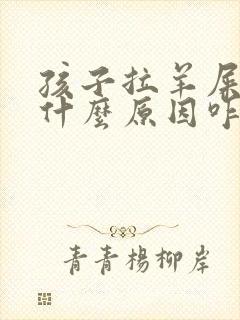 孩子拉羊屎
什麼原因咋
青青楊柳岸